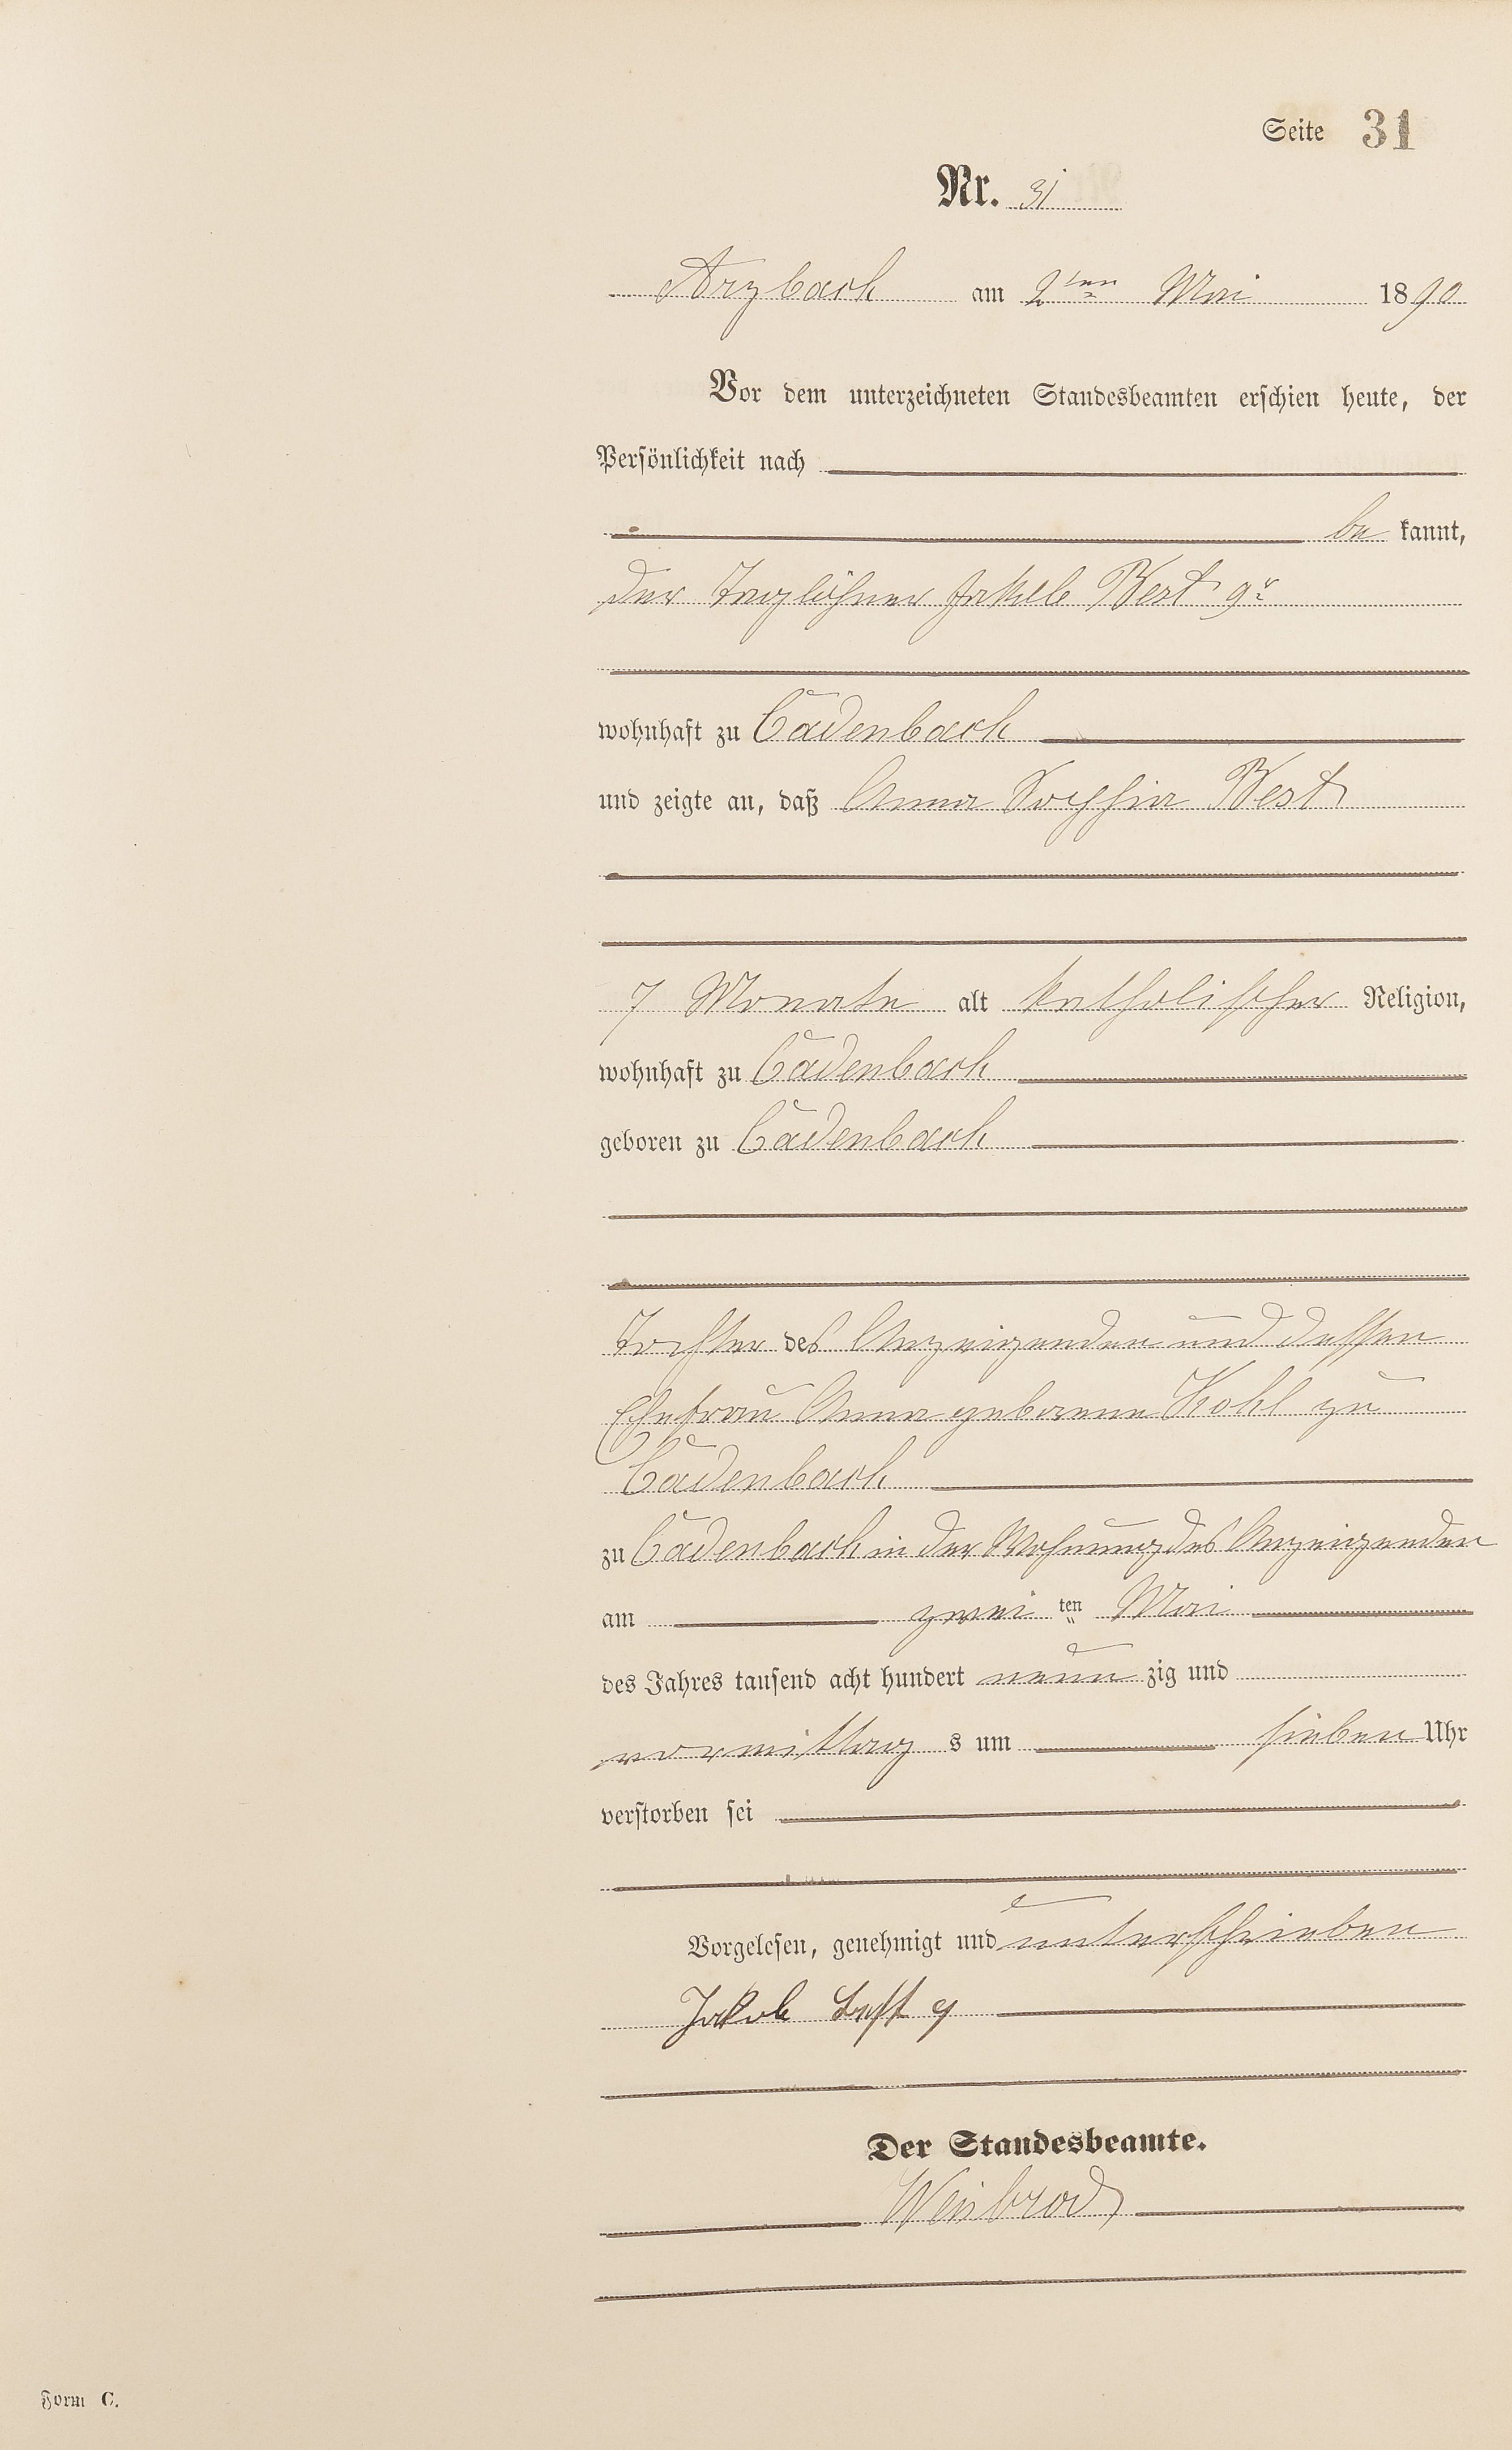 Seite 31
Nr. 31
Arzbach am 2ten Mai 1890
Vor dem unterzeichneten Standesbeamten erschien heute, der
Persönlichkeit nach
be kannt,
der Taglöhner Jakob Best 9r
wohnhaft zu Cadenbach
und zeigte an, daß Anna Sophia Best
7 Monate alt katholischer Religion,
wohnhaft zu Cadenbach
geboren zu Cadenbach
Tochter des Anzeigenden und dessen
Ehefrau Anna geborene Kohl zu
Cadenbach
zu Cadenbach in der Wohnung des Anzeigenden
am zwei ten Mai
des Jahres tausend acht hundert neun zig und
vormittag s um sieben Uhr
verstorben sei
Vorgelesen, genehmigt und unterschrieben
Jakob Best 9
Der Standesbeamte.
Weisbrod
Form C.